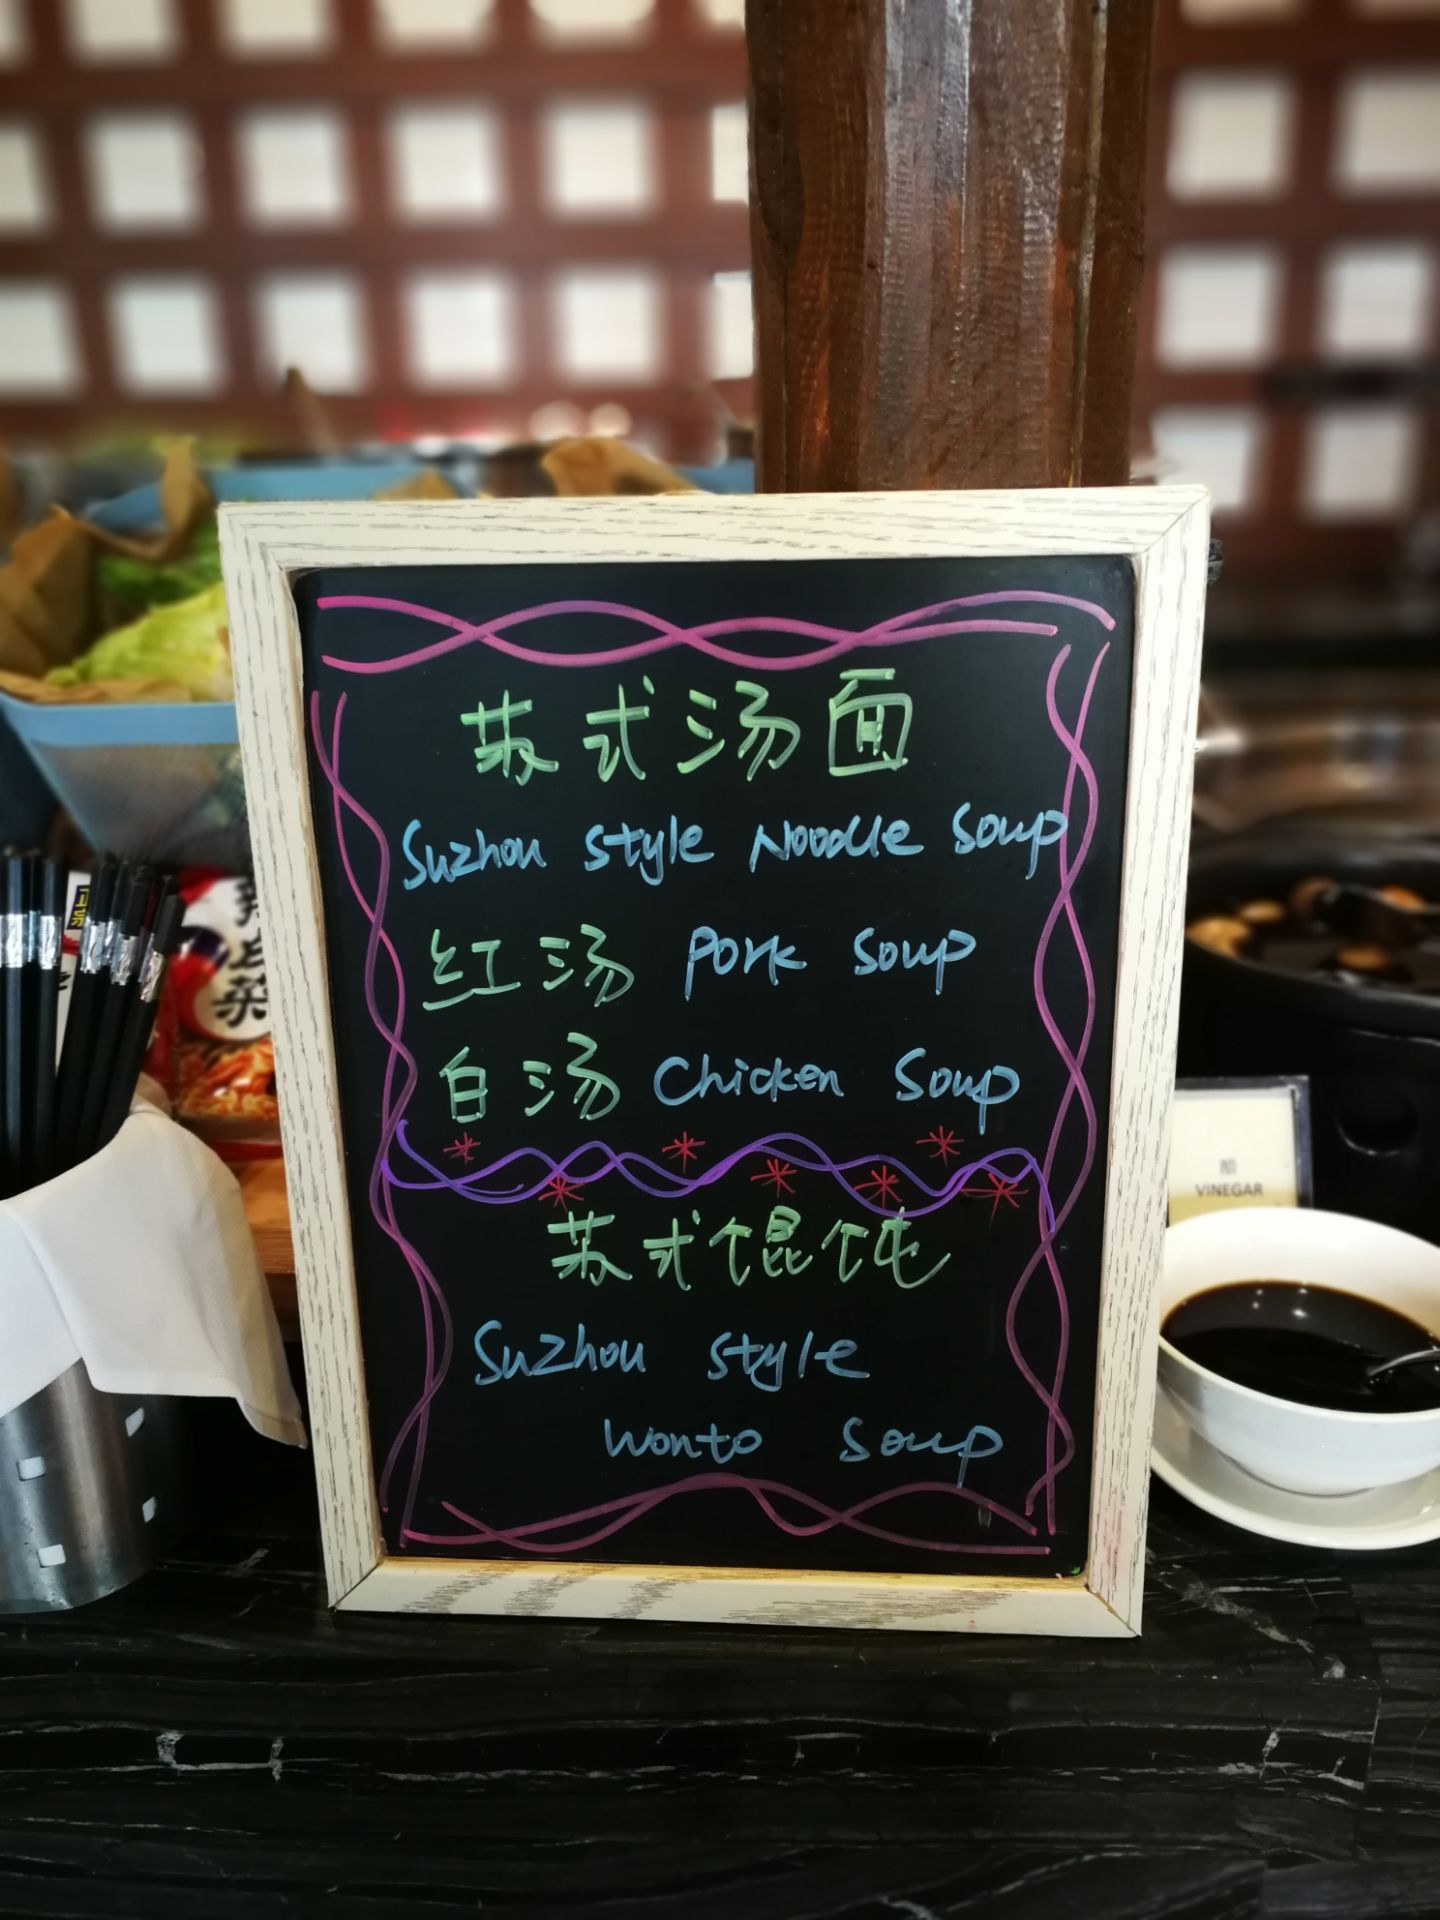 苏式汤面
Suzhou style Noodle Soup
红汤 Pork Soup
白汤 Chicken Soup
苏式馄饨
Suzhou style
Wonto Soup
醋
VINEGAR